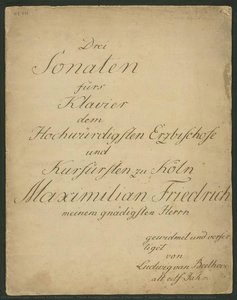 Drei
Sonaten
fürs
Klavier
dem
Hochwürdigsten Erzbischofe
und
Kurfürsten zu Köln
Maximilian Friedrich
meinem gnädigsten Herrn
gewidmet und verfer
tiget
von
Ludwig van Beethoven
alt eilf Jahr